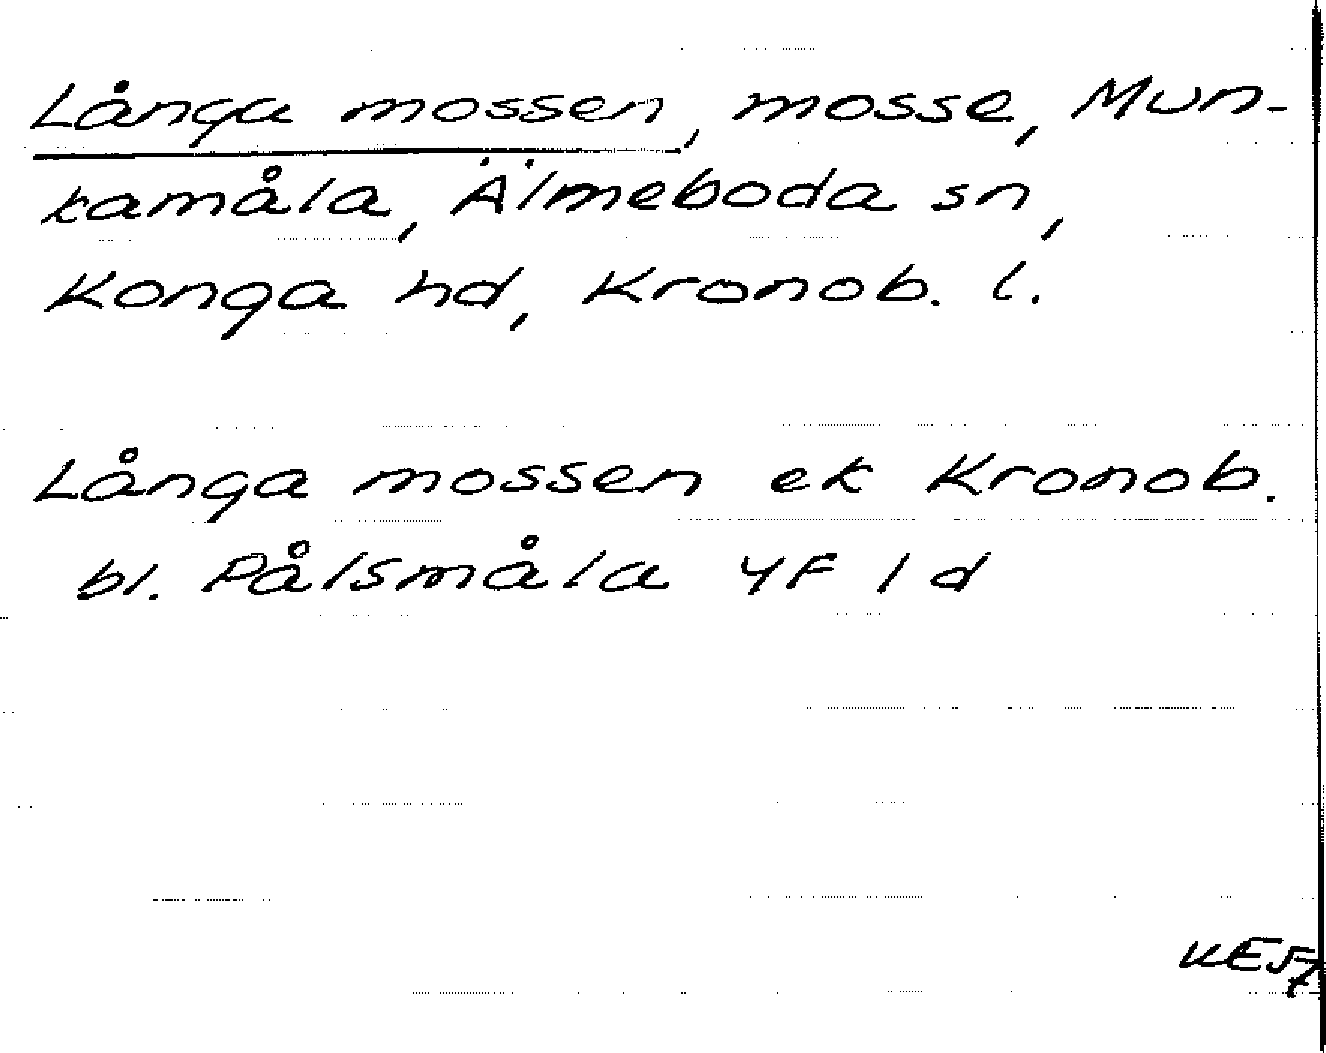 Långa mossen, mosse, Mun-
kamåla, Älmeboda sn,
Konga hd, Kronob. l.
Långa mossen ek Kronob.
bl. Pålsmåla 4F 1 d